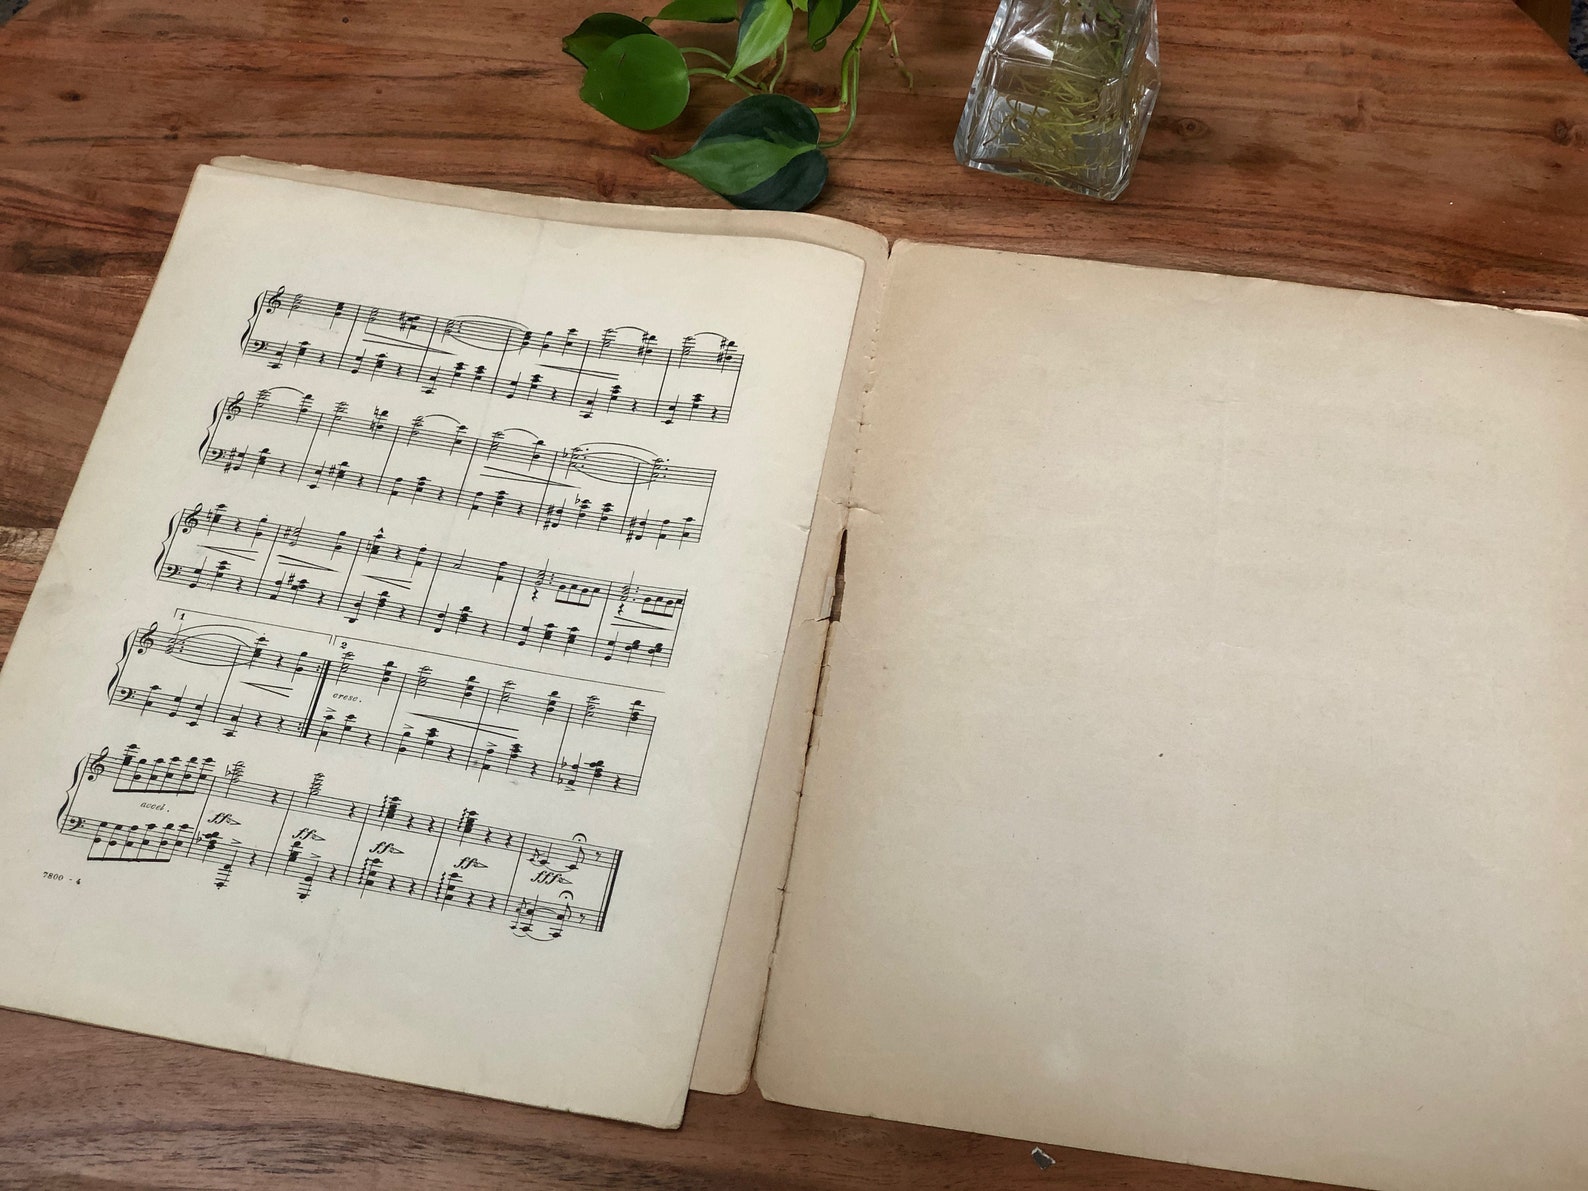 1
2
cresc.
accel.
ff
ff
ff
ff
fff
7800 - 4